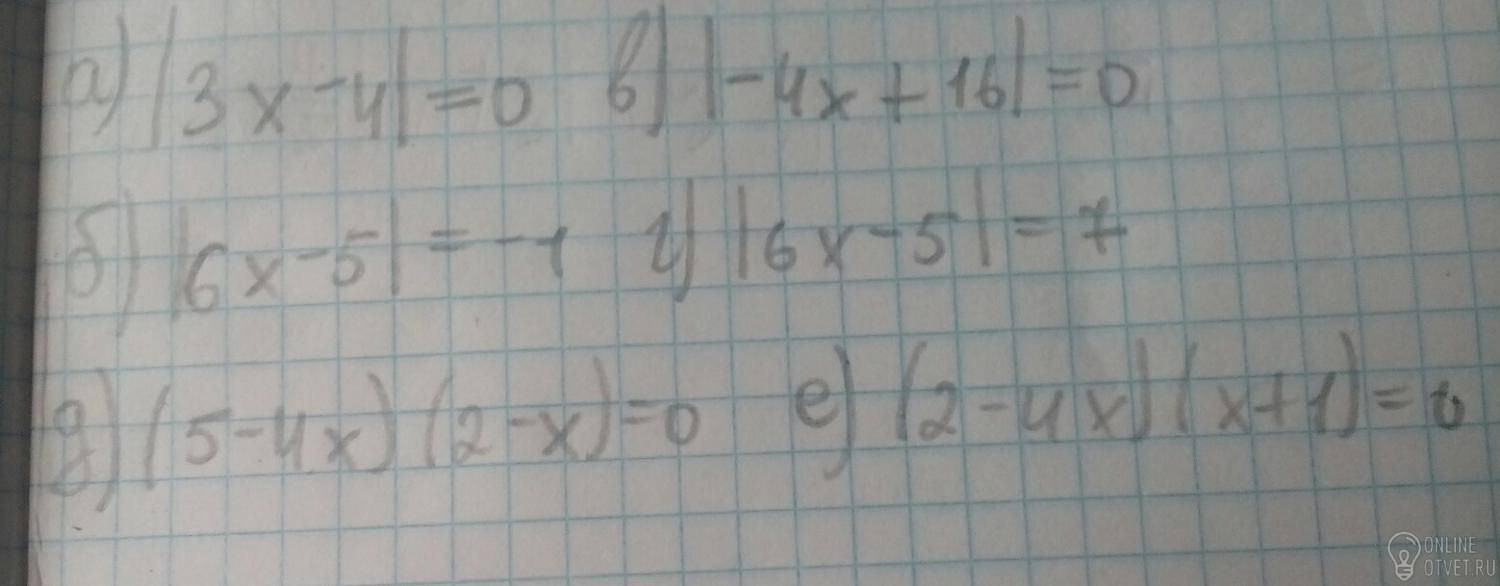 а) |3x-4|=0 в) |-4x+16|=0
б) |6x-5|=-1 г) |6x-5|=7
д) (5-4x)(2-x)=0 е) (2-4x)(x+1)=0
ONLINE
OTVET.RU